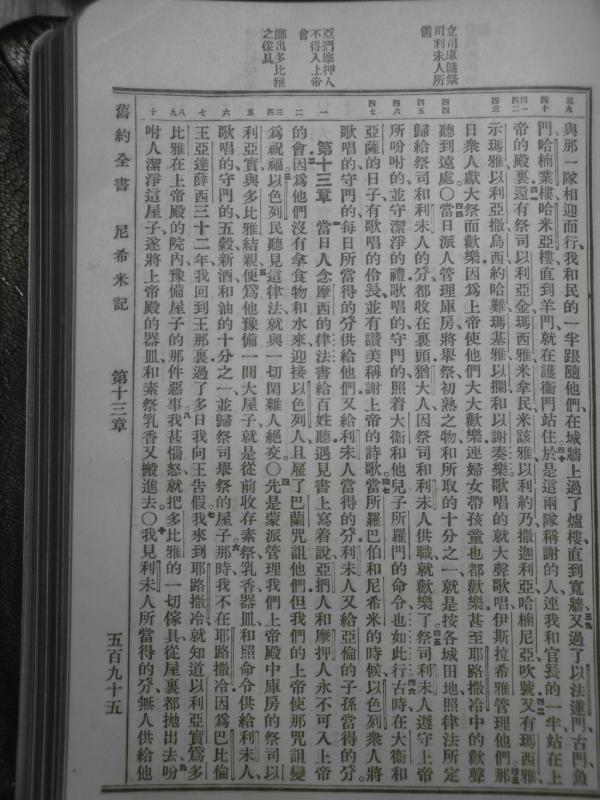 立司庫儲祭
司利未人所
需
亞捫摩押人
不得入上帝
會
擲出多比雅
之傢具
與那一隊相迎而行我和民的一半跟隨他們在城牆上過了爐樓直到寬牆又過了以法蓮門古門魚
門哈楠業樓哈米亞樓直到羊門就在護衞門站住於是這兩隊稱謝的人連我和官長的一半站在上
帝的殿裏還有祭司以利亞金瑪西雅米拿民米該雅以利約乃撒迦利亞哈楠尼亞吹號又有瑪西雅
示瑪雅以利亞撒烏西約哈難瑪基雅以攔和以謝奏樂歌唱的就大聲歌唱伊斯拉希雅管理他們那
日衆人獻大祭而歡樂因爲上帝使他們大大歡樂連婦女帶孩童也都歡樂甚至耶路撒冷中的歡聲
聽到遠處〇當日派人管理庫房將舉祭初熟之物和所取的十分之一就是按各城田地照律法所定
歸給祭司和利未人的分都收在裏頭猶大人因祭司和利未人供職就歡樂了祭司利未人遵守上帝
所吩咐的並守潔淨的禮歌唱的守門的照着大衞和他兒子所羅門的命令也如此行古時在大衞和
亞薩的日子有歌唱的伶長並有讚美稱謝上帝的詩歌當所羅巴伯和尼希米的時候以色列衆人將
歌唱的守門的每日所當得的分供給他們又給利未人當得的分利未人又給亞倫的子孫當得的分
第十三章 當日人念摩西的律法書給百姓聽遇見書上寫着說亞捫人和摩押人永不可入上帝
的會因爲他們沒有拿食物和水來迎接以色列人且雇了巴蘭咒詛他們但我們的上帝使那咒詛變
爲祝福以色列民聽見這律法就與一切閒雜人絕交〇先是蒙派管理我們上帝殿中庫房的祭司以
利亞實與多比雅結親便爲他豫備一間大屋子就是從前收存素祭乳香器皿和照命令供給利未人
歌唱的守門的五穀新酒和油的十分之一並歸祭司舉祭的屋子那時我不在耶路撒冷因爲巴比倫
王亞達薛西三十二年我回到王那裏過了多日我向王告假我來到耶路撒冷就知道以利亞實爲多
比雅在上帝殿的院內豫備屋子的那件惡事我甚惱怒就把多比雅的一切傢具從屋裏都拋出去吩
咐人潔淨這屋子遂將上帝殿的器皿和素祭乳香又搬進去〇我見利未人所當得的分無人供給他
舊約全書 尼希米記 第十三章 五百九十五